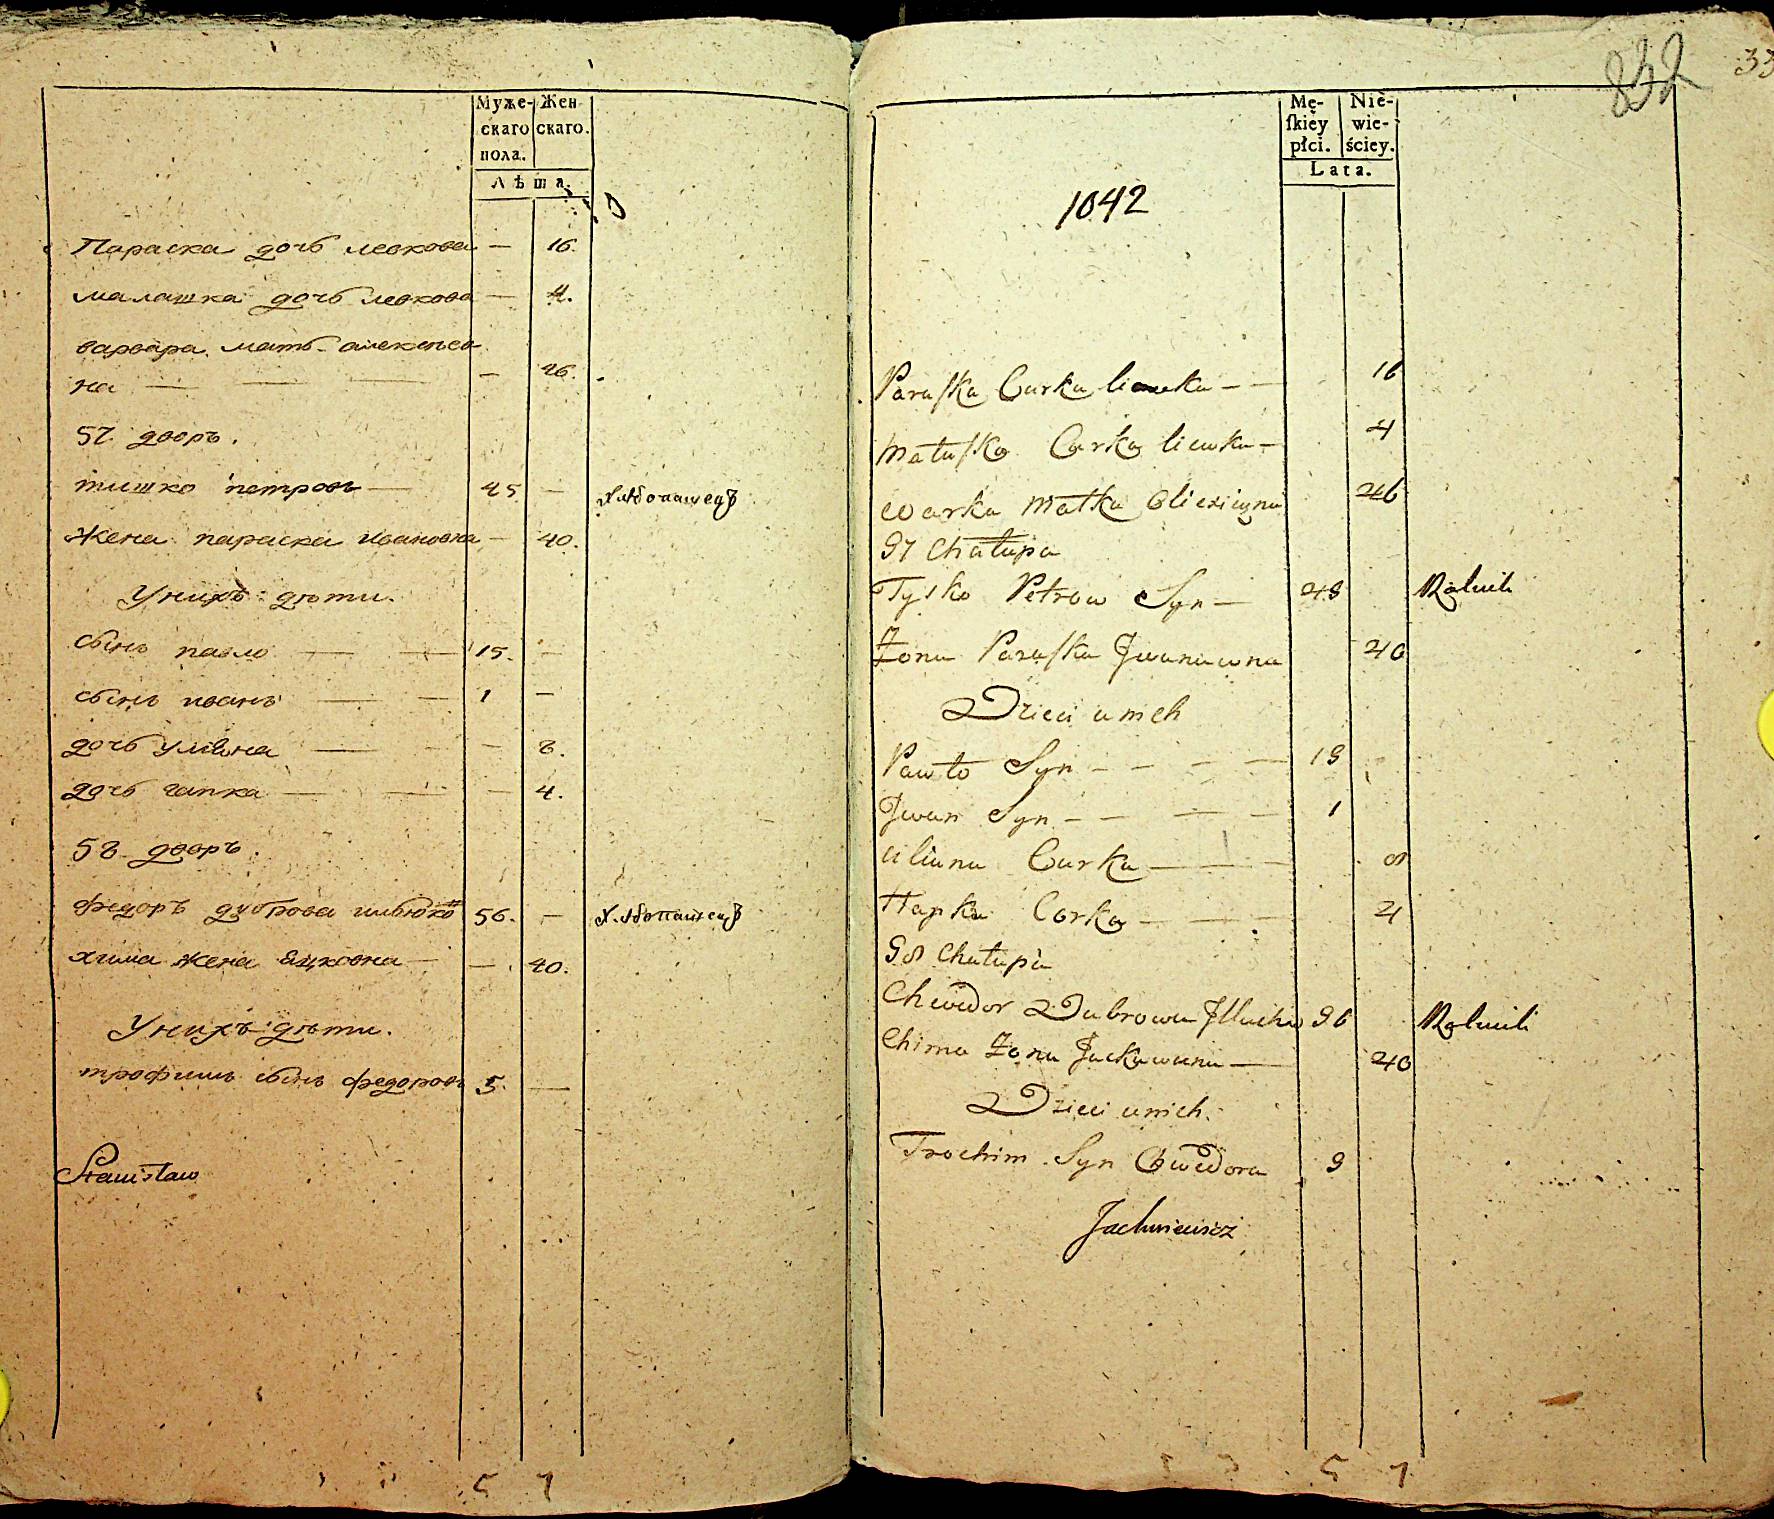 Муже-
скаго
пола.
Жен
скаго.
Лѣта.
Параска дочь левкова — 16.
малашка дочь левкова — 4.
варвара мать алексѣев
на — — — — 46.
57 дворъ.
тишко петровъ — 45 — хлѣбопашецъ
Жена параска ивановна — 40.
У нихъ дѣти.
сынъ павло — — 15. —
сынъ иванъ — — 1 —
дочь уляна — — — 8.
дочь гапка — — — 4.
58 дворъ.
федоръ дуброва 56. — хлѣбопашецъ
хима жена яцковна — — 40.
У нихъ дѣти.
трофимъ сынъ федоровъ 5. —
Stanisław
832
33
Mę-
ſkiey
płci.
Nie-
wie-
ściey.
Lata.
1042
Paraſka Curka liewka — — 16
Małaſka Curka liewka — 4
Warka Matka 46
57 Chałupa
Tyſko Petrow Syn — 45 Rolnik
Żona Paraſka Jwanowna 40
Dzieci u nich
Pawło Syn - - - — 15
Jwan Syn - - — — 1
Uliana Curka — — — 8
Hapka Corka — — — 4
58 Chałupa
Chwedor Dubrowa 56 Rolnik
Chima Żona Jackowna — 40
Dzieci u nich.
Trochim Syn Chwedora 5
Jachniewicz
5 7
5 7